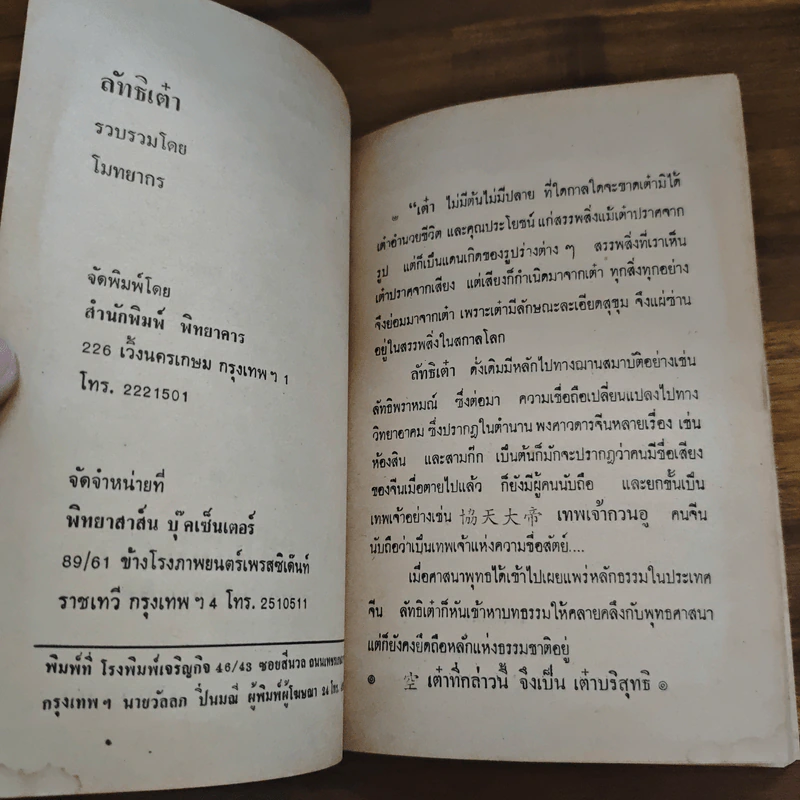 ลัทธิเต๋า
รวบรวมโดย
โมทยากร
จัดพิมพ์โดย
สำนักพิมพ์ พิทยาคาร
226 เวิ้งนครเกษม กรุงเทพฯ 1
โทร. 2221501
จัดจำหน่ายที่
พิทยาสาส์น บุ๊คเซ็นเตอร์
89/61 ข้างโรงภาพยนตร์เพรสซิเด๊นท์
ราชเทวี กรุงเทพฯ 4 โทร. 2510511
พิมพ์ที่ โรงพิมพ์เจริญกิจ 46/43 ซอยสีนวล
กรุงเทพฯ นายวัลลภ ปิ่นมณี ผู้พิมพ์ผู้โฆษณา
๒ "เต๋า ไม่มีต้นไม่มีปลาย ที่ใดกาลใดจะขาดเต๋ามิได้
เต๋าอำนวยชีวิต และคุณประโยชน์ แก่สรรพสิ่งแม้เต๋าปราศจาก
รูป แต่ก็เป็นแดนเกิดของรูปร่างต่าง ๆ สรรพสิ่งที่เราเห็น
เต๋าปราศจากเสียง แต่เสียงก็กำเนิดมาจากเต๋า ทุกสิ่งทุกอย่าง
จึงย่อมมาจากเต๋า เพราะเต๋ามีลักษณะละเอียดสุขุม จึงแผ่ซ่าน
อยู่ในสรรพสิ่งในสกาลโลก
ลัทธิเต๋า ดั้งเดิมมีหลักไปทางฌานสมาบัติอย่างเช่น
ลัทธิพราหมณ์ ซึ่งต่อมา ความเชื่อถือเปลี่ยนแปลงไปทาง
วิทยาอาคม ซึ่งปรากฏในตำนาน พงศาวดารจีนหลายเรื่อง เช่น
ห้องสิน และสามก๊ก เป็นต้นก็มักจะปรากฏว่าคนมีชื่อเสียง
ของจีนเมื่อตายไปแล้ว ก็ยังมีผู้คนนับถือ และยกขึ้นเป็น
เทพเจ้าอย่างเช่น 協天大帝 เทพเจ้ากวนอู คนจีน
นับถือว่าเป็นเทพเจ้าแห่งความซื่อสัตย์....
เมื่อศาสนาพุทธได้เข้าไปเผยแพร่หลักธรรมในประเทศ
จีน ลัทธิเต๋าก็หันเข้าหาบทธรรมให้คลายคลึงกับพุทธศาสนา
แต่ก็ยังคงยึดถือหลักแห่งธรรมชาติอยู่
๏ 空 เต๋าที่กล่าวนี้ จึงเป็น เต๋าบริสุทธิ ๏